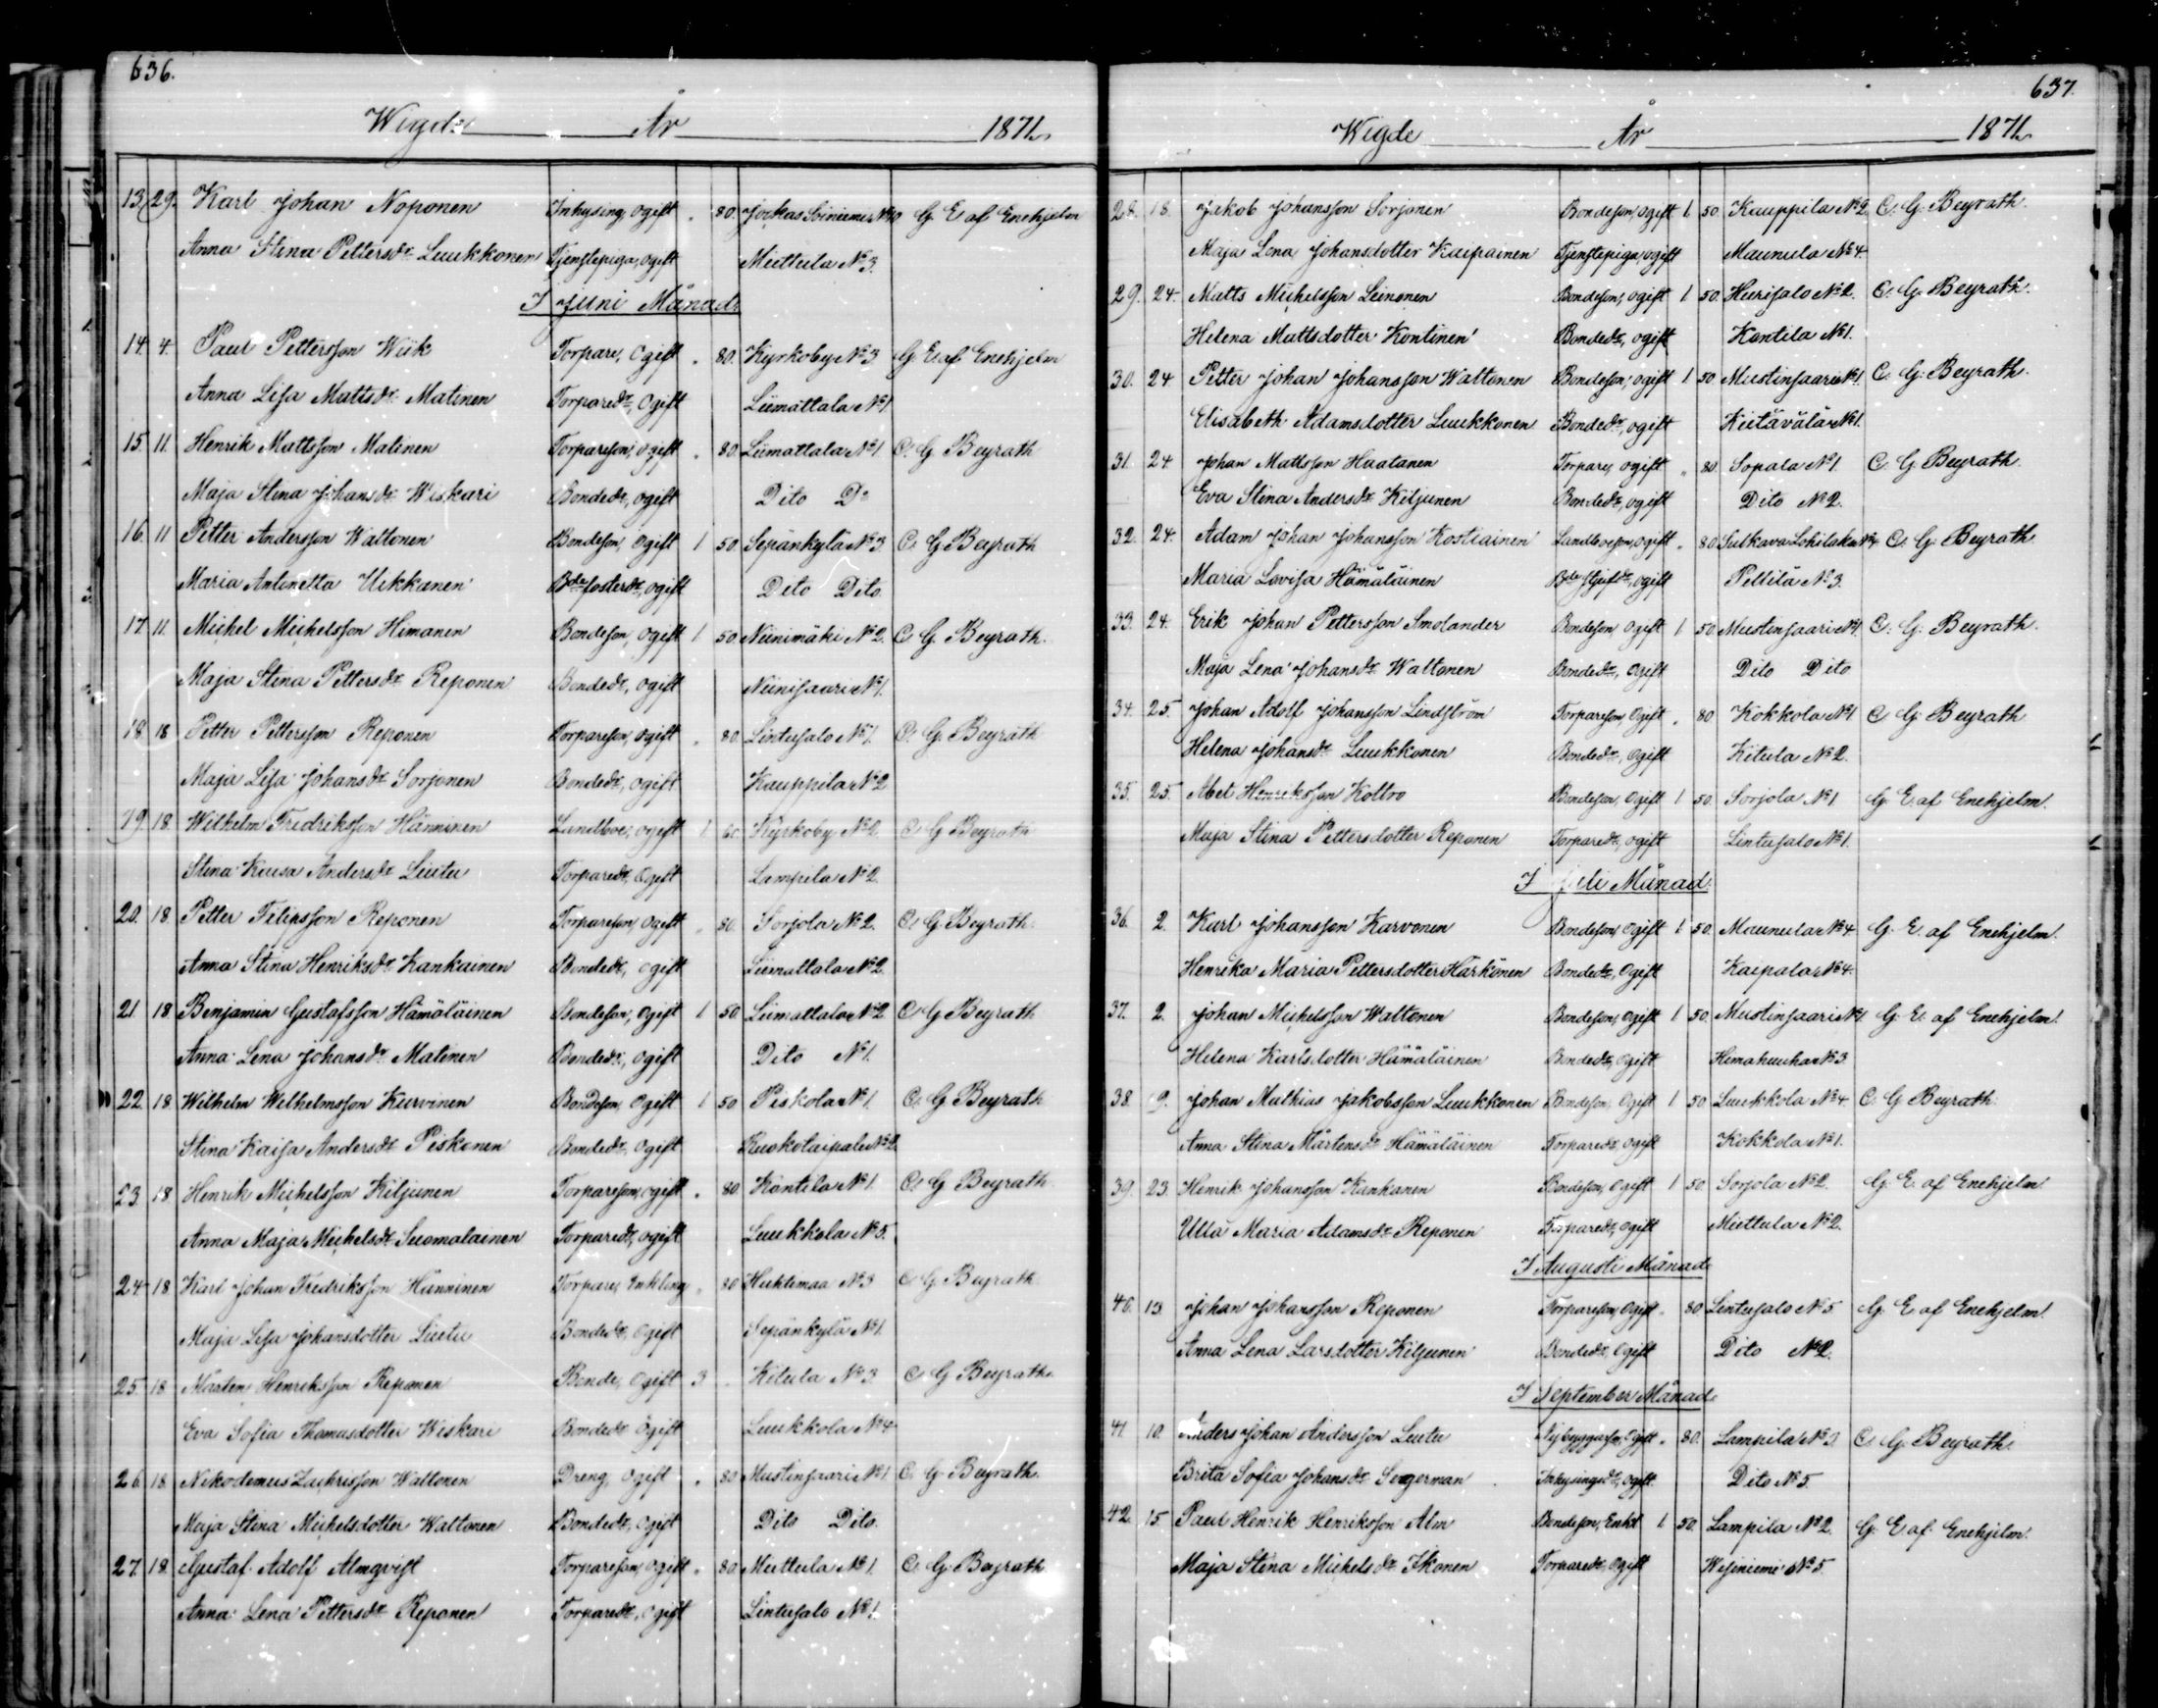 636.
Wigde År 1871.
13. 29. Karl Johan Noponen Inhysing, ogift " 80. Jockas Soiniemi No 10 G. E. af Enehjelm
Anna Stina Pettersdr Luukkonen Tjenstepiga, ogift Miettula No 3.
I Juni Månad.
14. 4. Paul Pettersson Wiik Torpare, Ogift " 80. Kyrkoby No 3 G. E. af Enehjelm
Anna Lisa Mattsdr Matinen Torparedr, Ogift Liimattala No 1
15. 11. Henrik Mattsson Matinen Torpareson, ogift " 80. Liimattala No 1 C. G. Beyrath
Maja Stina Johansdr Wiskari Bondedr, ogift Dito Do
16. 11 Petter Andersson Waltonen Bondeson, Ogift 1 50. Sepänkylä No 3 C. G. Beyrath
Maria Antonetta Ukkanen Bde fosterdr, ogift Dito Dito.
17. 11. Michel Michelsson Himanen Bondeson, Ogift 1 50. Niinimäki No 2. C. G. Beyrath.
Maja Stina Pettersdr Reponen Bondedr, ogift Niinisaari No 1.
18 18 Petter Pettersson Reponen Torpareson, ogift " 80. Lintusalo No 1. C. G. Beyrath
Maja Lisa Johansdr Sorjonen Bondedr, ogift Kauppila No 2
19. 18. Wilhelm Fredriksson Hänninen Landboe, ogift 1 60. Kyrkoby No 2. C. G. Beyrath
Stina Kaisa Andersdr Liutu Torparedr, Ogift Lampila No 2.
20. 18. Petter Feliksson Reponen Torpareson, Ogift " 80. Sorjola No 2. C. G. Beyrath.
Anna Stina Henriksdr Kankainen Bondedr, ogift Liimattala No 2.
21. 18 Benjamin Gustafsson Hämäläinen Bondeson, Ogift 1 50 Liimattala No 2 C. G. Beyrath
Anna Lena Johansdr Matinen Bondedr, ogift Dito No 1.
22. 18. Wilhelm Wilhelmsson Kurvinen Bondeson, Ogift 1 50 Piskola No 1. C. G. Beyrath
Stina Kaisa Andersdr Piskonen Bondedr, Ogift Ruokotaipale No 2
23. 18 Henrik Michelsson Kiljunen Torpareson, ogift " 80. Kontila No 1. C. G. Beyrath.
Anna Maja Michelsdr Suomalainen Torparedr, ogift Luukkola No 5.
24 18 Karl Johan Fredriksson Hänninen Torpare, Enkling " 80 Huhtimaa No 3 C. G. Beyrath.
Maja Lisa Johansdotter Liutu Bondedr, Ogift Sepänkylä No 1.
25 18 Mårten Henriksson Reponen Bonde, Ogift 3 " Kitula No 3 C. G. Beyrath.
Eva Sofia Thomasdotter Wiskari Bondedr Ogift Luukkola No 4.
26. 18. Nikodemus Zachrisson Waltonen Dreng, Ogift " 80 Mustinsaari No 1. C. G. Beyrath.
Maja Stina Michelsdotter Waltonen Bondedr, Ogift Dito Dito.
27. 18. Gustaf Adolf Almqvist Torpareson, Ogift " 80. Miettula No 1. C. G. Beyrath
Anna Lena Pettersdr Reponen Torparedr, Ogift Lintusalo No 1.
637.
Wigde År 1871.
28. 18. Jakob Johansson Sorjonen Bondeson, ogift 1 50. Kauppila No 2. C. G. Beyrath.
Maja Lena Johansdotter Kaipainen Tjenstepiga, ogift Maunula No 4.
29. 24. Matts Michelsson Leinonen Bondeson, ogift 1 50. Huurisalo No 2. C. G. Beyrath.
Helena Mattsdotter Kontinen Bondedr, ogift Kontila No 1.
30. 24 Petter Johan Johansson Waltonen Bondeson, ogift 1 50. Mustinsaari No 1. C. G. Beyrath.
Elisabeth Adamsdotter Luukkonen Bondedr, ogift Kietävälä No 1.
31. 24. Johan Mattsson Huatanen Torpare, ogift " 80. Sopala No 1. C. G. Beyrath.
Eva Stina Andersdr Kiljunen Bondedr, ogift Dito No 2.
32. 24. Adam Johan Johansson Kostiainen Landboeson, ogift " 80 Sulkava Lohilaks No 4 C. G. Beyrath.
Maria Lovisa Hämäläinen Bde styfdr, ogift Pellilä No 3.
33. 24. Erik Johan Pettersson Smolander Bondeson, Ogift 1 50. Mustinsaari No 1. C. G. Beyrath.
Maja Lena Johansdr Waltonen Bondedr, Ogift Dito Dito
34. 25. Johan Adolf Johansson Lindström Torpareson, Ogift " 80. Kokkola No 1 C. G. Beyrath
Helena Johansdr Luukkonen Bondedr, Ogift Kitula No 2.
35. 25. Abel Henriksson Koltro Bondeson, Ogift 1 50. Sorjola No 1 G. E. af Enehjelm.
Maja Stina Pettersdotter Reponen Torparedr, ogift Lintusalo No 1.
I Juli Månad.
36. 2. Karl Johansson Karvonen Bondeson, Ogift 1 50. Maunula No 4. G. E. af Enehjelm.
Henrika Maria Pettersdotter Härkönen Bondedr, Ogift Kaipala No 4.
37. 2. Johan Michelsson Waltonen Bondeson, Ogift 1 50. Mustinsaari No 1. G. E. af Enehjelm.
Helena Karlsdotter Hämäläinen Bondedr, Ogift Himahuuha No 3
38. 9. Johan Mathias Jakobsson Luukkonen Bondeson, Ogift 1 50 Luukkola No 4. C. G. Beyrath.
Anna Stina Mårtensdr Hämäläinen Torparedr, Ogift Kokkola No 1.
39. 23. Henrik Johansson Kankanen Bondeson, Ogift 1 50. Sorjola No 2. G. E. af Enehjelm
Ulla Maria Adamsdr Reponen Torparedr, Ogift Miettula No 2.
I Augusti Månad.
40. 13 Johan Johansson Reponen Torpareson, Ogift " 80. Lintusalo No 5 G. E. af Enehjelm.
Anna Lena Larsdotter Kiljunen Bondedr, Ogift Dito No 2.
I September Månad.
41 10. Anders Johan Andersson Luutu Nybyggaren, Ogift " 80. Lampila No 3. C. G. Beyrath.
Brita Sofia Johansdr Segerman Inhysingdr, Ogift. Dito No 5.
42. 15. Paul Henrik Henriksson Alm Bondeson, Enkl 1 50. Lampila No 2. G. E. af Enehjelm.
Maja Stina Michelsdr Ikonen Torparedr, Ogift Wesiniemi No 5.